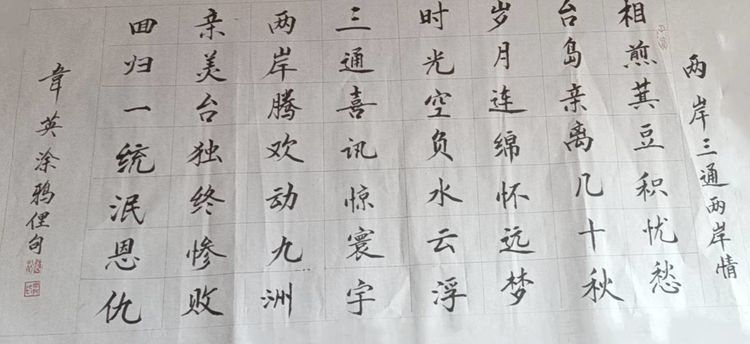 两岸三通两岸情
相煎萁豆积忧愁
台岛亲离几十秋
岁月连绵怀远梦
时光空负水云浮
三通喜讯惊寰宇
两岸腾欢动九洲
亲美台独终惨败
回归一统泯恩仇
韋英涂鸦俚句